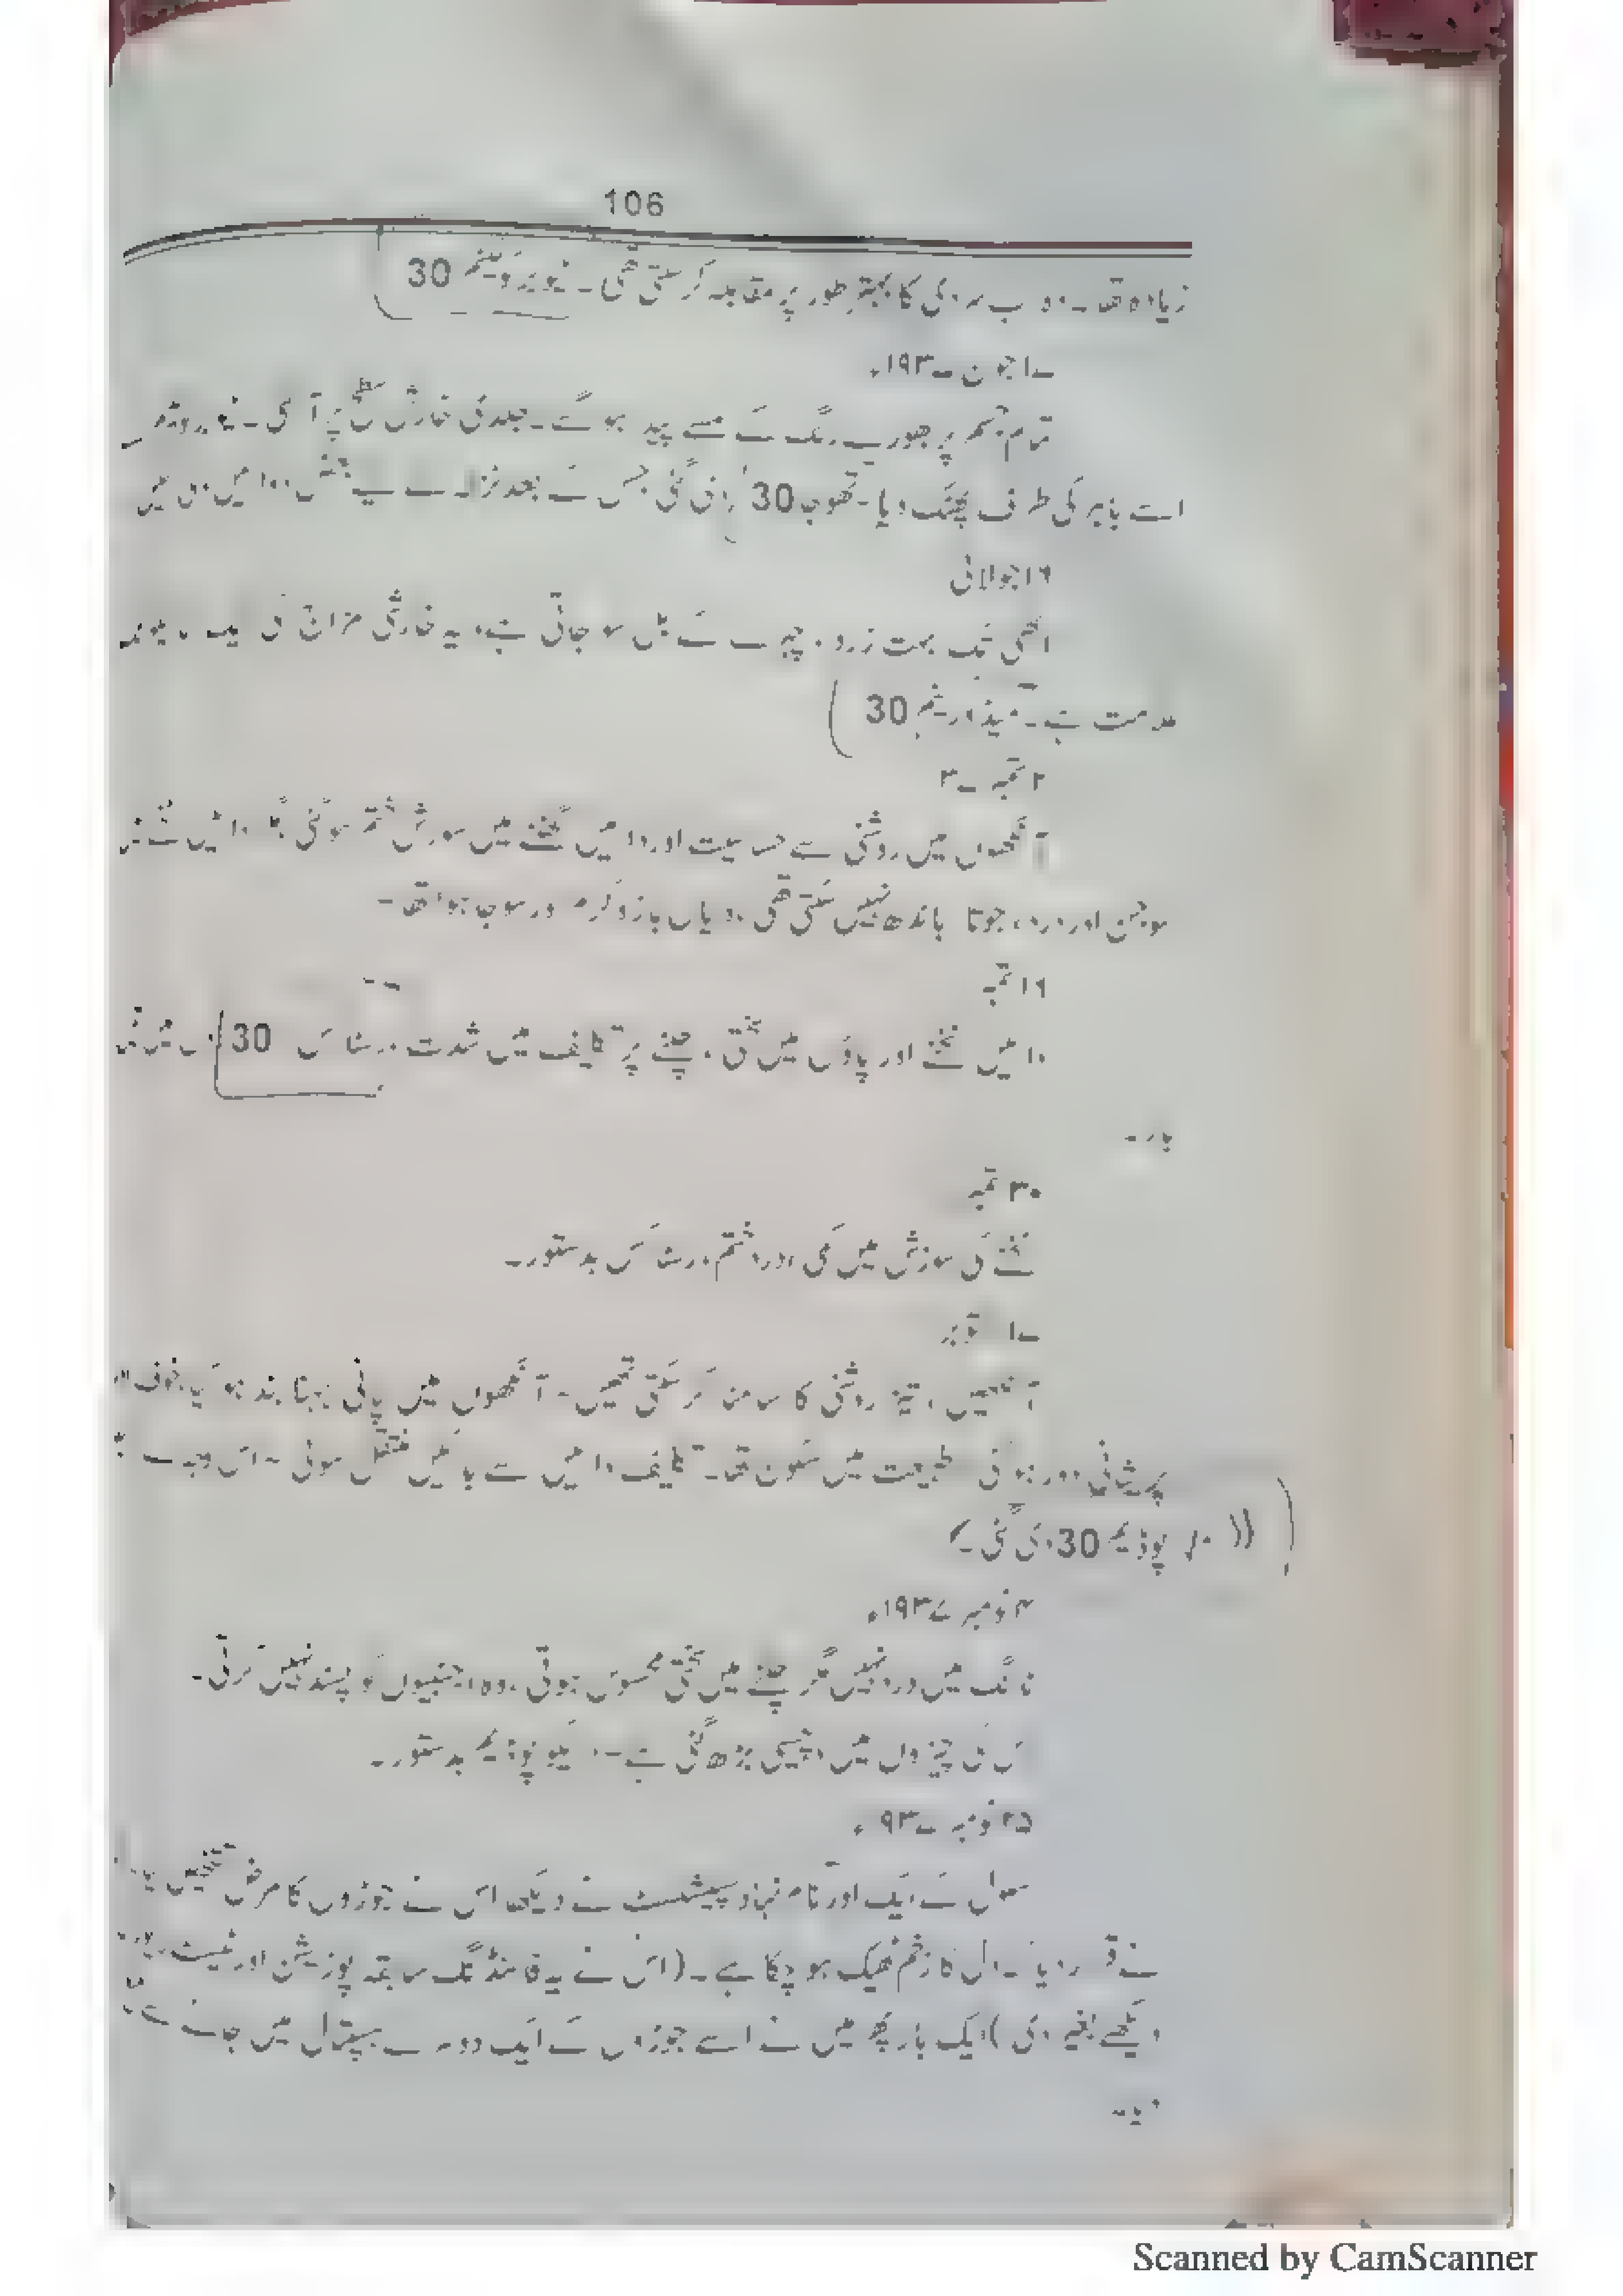 106
زیادہ تھا۔ وہ اب سردی کا بہتر طور پر مقابلہ کر سکتی تھی۔ ٹیوبرکولینم 30
۱۷ جون ۱۹۳۷ء
تمام جسم پر بھورے رنگ کے مسے پیدا ہو گئے۔ جلدی خارش سطح پر آ گئی۔
اسے باہر کی طرف پھینک دیا۔ تھوجا 30 دی گئی جس کے بعد نزلہ کے لیے دوائیں دی گئیں
۱۶ جولائی
ابھی تک بہت زرد، چہرے کے بل سو جاتی ہے، یہ خارشی مزاج کی ایک
علامت ہے۔ میڈورینم 30
۲ ستمبر ۳۷
آنکھوں میں روشنی سے حساسیت اور دائیں گھٹنے میں سوزش ختم ہو گئی۔ دائیں ٹخنے
سوجن اور درد، جوتا باندھ نہیں سکتی تھی۔ دایاں بازو گرم اور سوجا ہوا تھا۔
۱۶ ستمبر
دائیں ٹخنے اور پاؤں میں سختی، چلنے پر تکلیف میں شدت۔ رسٹاکس 30
بار۔
۳۰ ستمبر
ٹخنے کی سوزش میں کمی، درد ختم، رسٹاکس بدستور۔
۱۷ اکتوبر
آنکھیں، تیز روشنی کا سامنا کر سکتی تھیں۔ آنکھوں میں پانی بہنا بند ہو گیا، خوف اور
پریشانی دور ہو گئی طبیعت میں سکون تھا۔ تکلیف دائیں سے بائیں منتقل ہوئی۔ اس وجہ سے
لائیکوپوڈیم 30 دی گئی۔
۴ نومبر ۱۹۳۷ء
ٹانگ میں درد نہیں مگر چلنے میں سختی محسوس ہوتی، وہ اجنبیوں کو پسند نہیں کرتی۔
اس کی چیزوں میں دلچسپی بڑھ گئی ہے۔ لائیکوپوڈیم بدستور۔
۲۵ نومبر ۱۹۳۷ء
سکول کے ایک اور نام نہاد سپیشلسٹ نے دیکھا اس نے جوڑوں کا مرض تشخیص
نے قرار دیا۔ دل کا زخم ٹھیک ہو چکا ہے۔ (اس نے یہ فائنڈنگ سابقہ پوزیشن اور ٹیسٹ
دیکھے بغیر دی) ایک بار پھر میں نے اسے جوڑوں کے ایک دوسرے ہسپتال میں جانے سے
Scanned by CamScanner